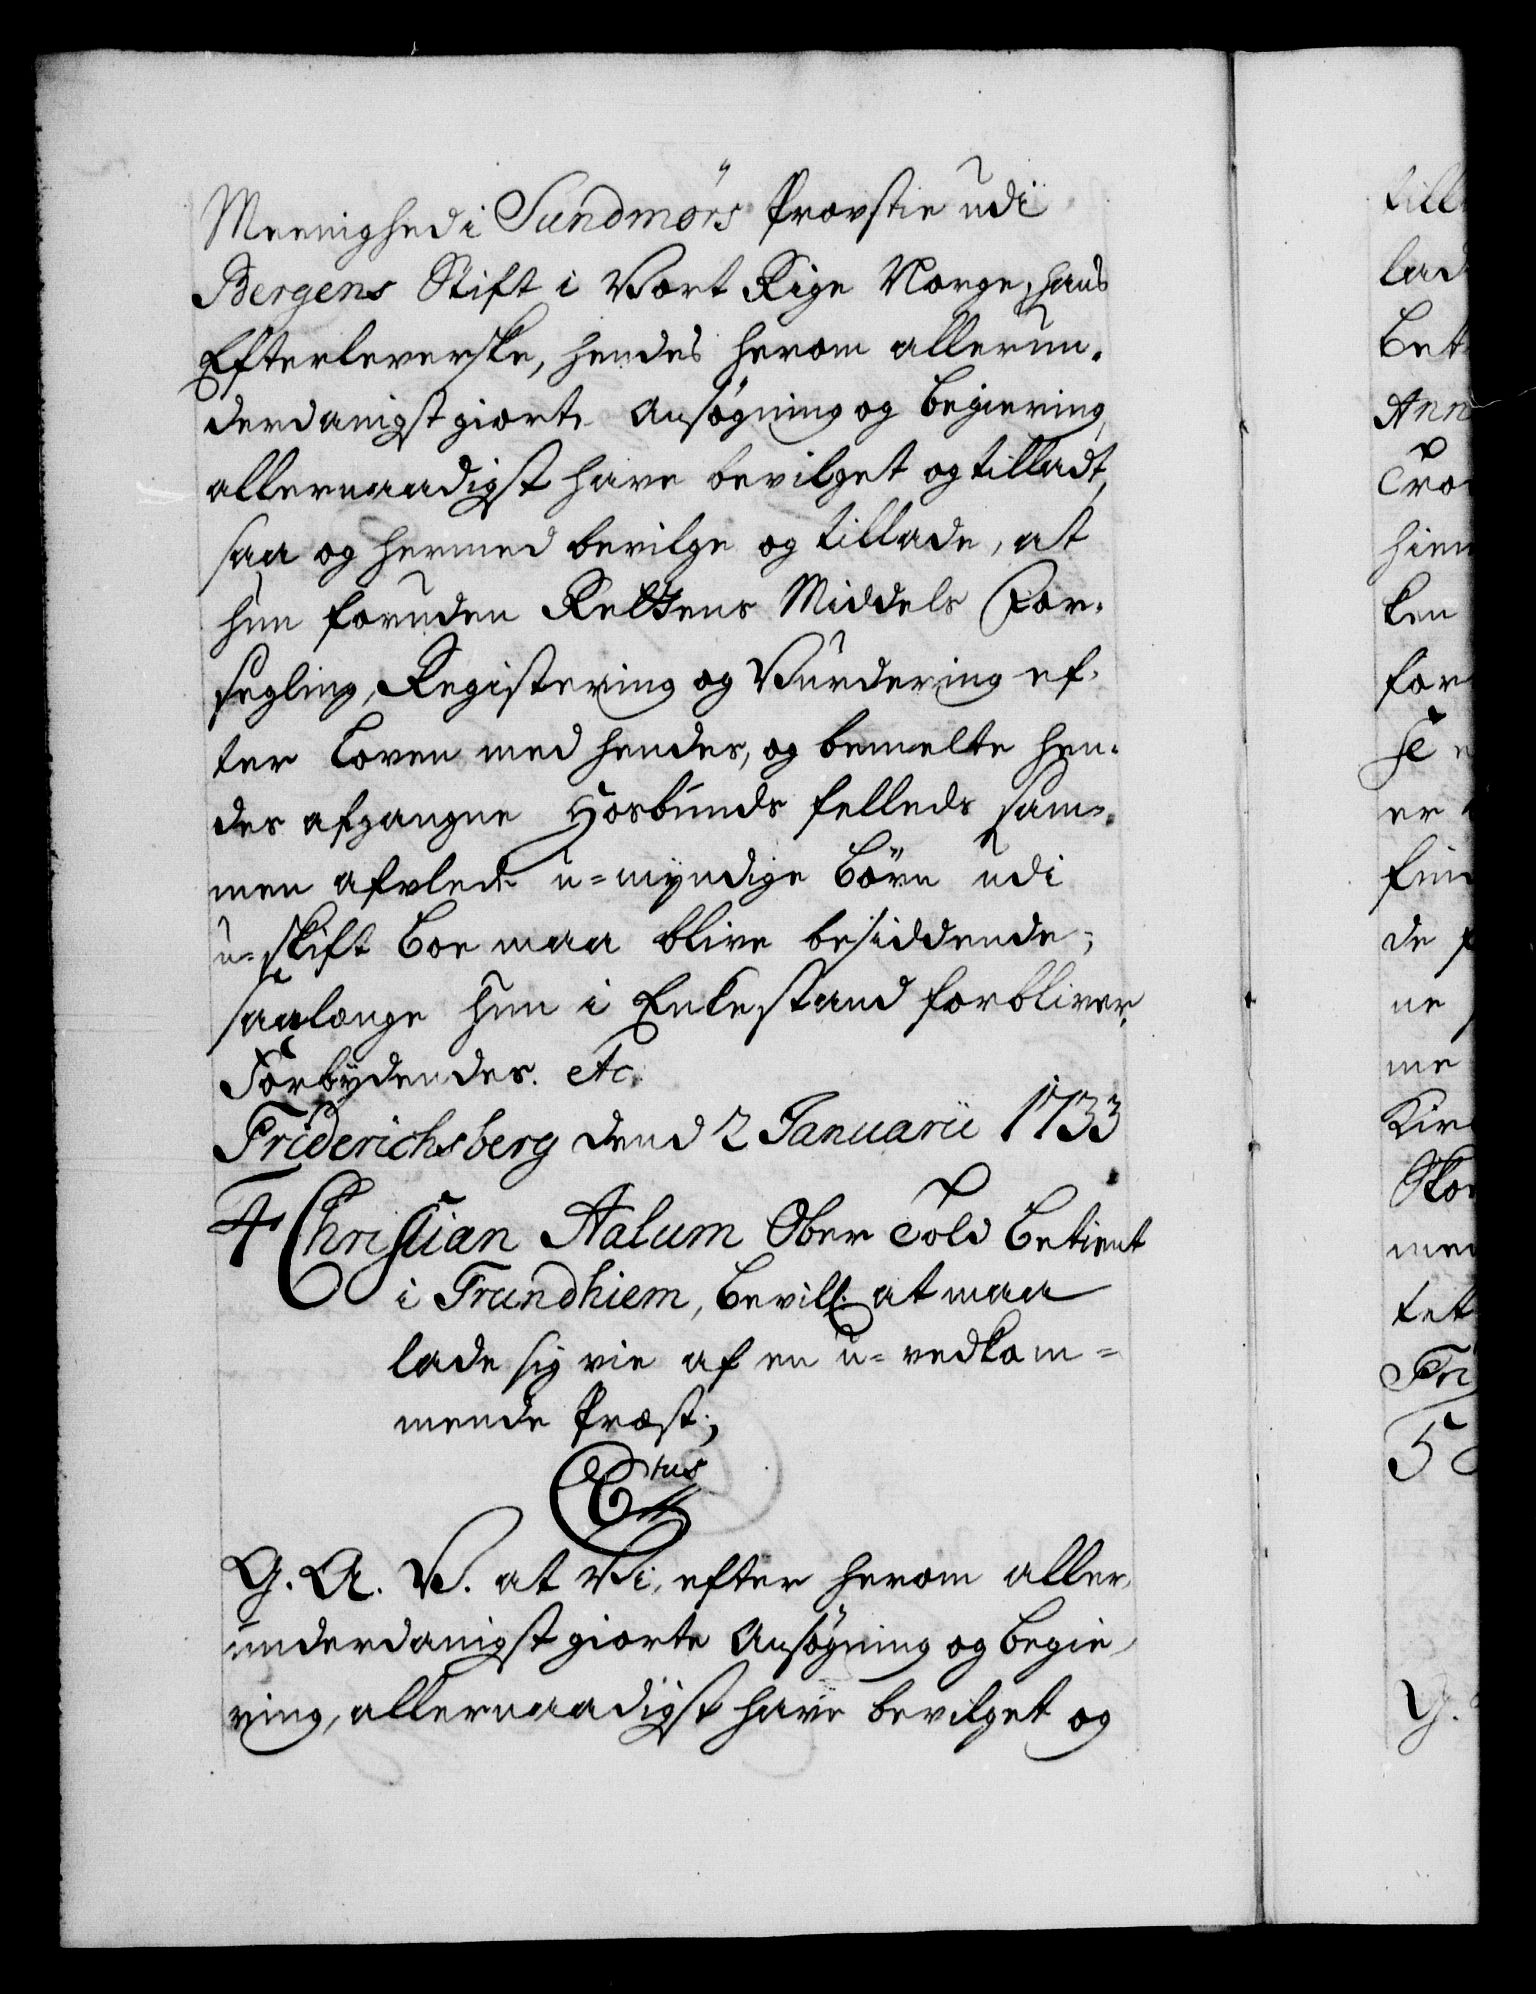 Meenighed i Sundmørs Provstie udi
Bergens Stift i Vort Rige Norge, hans
Efterleverske, hendes herom allerun-
derdanigst giorte Ansøgning og begiering,
allernaadigst have bevilget og tilladt,
saa og hermed bevilge og tillade, at
hun foruden Rettens Middels For-
segling, Registering og Vurdering ef-
ter Loven med hendes, og bemelte hen-
des afgangne Hosbunds felleds sam-
men aflede u-myndige Børn udi
u-skift Boe maa blive besiddende,
saalænge hun i Enkestand forbliver.
Forbydendes. etc.
Friderichsberg dend 2 Januarii 1733
4 Christian Aalum Ober Told Betient
i Trundhiem, Bevill: at maa
lade sig vie af en u-vedkom-
mende Præst;
Ctus
G. A. V. at Vi, efter herom aller-
underdanigst giorte Ansøgning og begie-
ring, allernaadigst have bevilget og
till
lad
Bet
Ann
Tro
hiem
ken
for
se
er
fin
de
ne
me
Kir
Skou
med
tet
Fri
5
G.